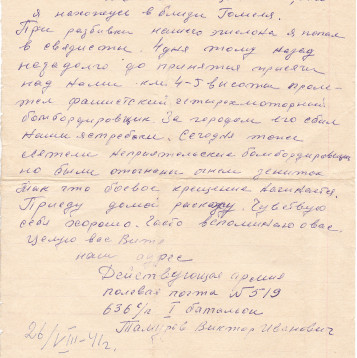 я нахожусь в близи Гомеля.
При разбивки нашего эшелона я попал
в связисты. 4 дня тому назад
незадолго до принятия присяги
над нами км 4-5 высоты проле-
тел фашистский четырехмоторный
бомбардировщик. За городом его сбил
наши ястребки. Сегодня тоже
летели неприятельские бомбардировщики
но были отогнаны огнем зениток
Так что боевое крещение
Приеду домой раскажу. Чувствую
себя хорошо. Часто вспоминаю о вас.
Целую вас Витя
наш адрес
Действующая армия
полевая почта №519
636 с/п I батальон
Виктор Иванович
26/VIII-41г.